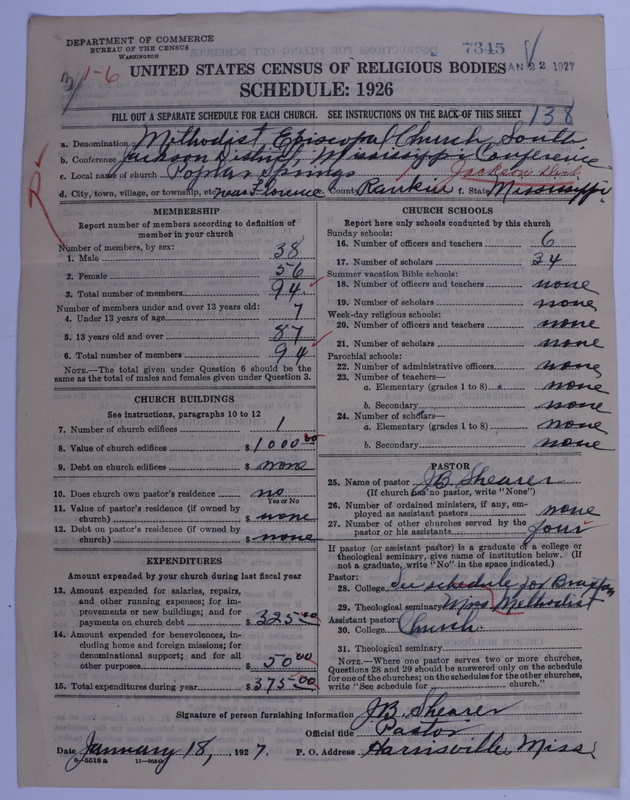 DEPARTMENT OF COMMERCE
BUREAU OF THE CENSUS
WASHINGTON
7345
JAN 22 1927
1-6
UNITED STATES CENSUS OF RELIGIOUS BODIES
SCHEDULE: 1926
FILL OUT A SEPARATE SCHEDULE FOR EACH CHURCH. SEE INSTRUCTIONS ON THE BACK OF THIS SHEET
138
a. Denomination Methodist Episcopal Church, South
b. Conference Jackson District, Mississippi Conference
c. Local name of church Poplar Springs Jackson Dist.
d. City, town, village, or township, etc. near Florence County Rankin f. State Mississippi
MEMBERSHIP
Report number of members according to definition of
member in your church
Number of members, by sex:
1. Male 38
2. Female 56
3. Total number of members 94
Number of members under and over 13 years old:
4. Under 13 years of age 7
5. 13 years old and over 87
6. Total number of members 94
NOTE.—The total given under Question 6 should be the
same as the total of males and females given under Question 3.
CHURCH BUILDINGS
See instructions, paragraphs 10 to 12
7. Number of church edifices 1
8. Value of church edifices $ 1000.00
9. Debt on church edifices $ none
10. Does church own pastor's residence no
Yes or No
11. Value of pastor's residence (if owned by
church) $ none
12. Debt on pastor's residence (if owned by
church) $ none
EXPENDITURES
Amount expended by your church during last fiscal year
13. Amount expended for salaries, repairs,
and other running expenses; for im-
provements or new buildings; and for
payments on church debt $ 325.00
14. Amount expended for benevolences, in-
cluding home and foreign missions; for
denominational support; and for all
other purposes $ 50.00
15. Total expenditures during year $ 375.00
CHURCH SCHOOLS
Report here only schools conducted by this church
Sunday schools:
16. Number of officers and teachers 6
17. Number of scholars 34
Summer vacation Bible schools:
18. Number of officers and teachers none
19. Number of scholars none
Week-day religious schools:
20. Number of officers and teachers none
21. Number of scholars none
Parochial schools:
22. Number of administrative officers none
23. Number of teachers—
a. Elementary (grades 1 to 8) none
b. Secondary none
24. Number of scholars—
a. Elementary (grades 1 to 8) none
b. Secondary none
PASTOR
25. Name of pastor J B Shearer
(If church has no pastor, write "None")
26. Number of ordained ministers, if any, em-
ployed as assistant pastors none
27. Number of other churches served by the
pastor or his assistants four
If pastor (or assistant pastor) is a graduate of a college or
theological seminary, give name of institution below. (If
not a graduate, write "No" in the space indicated.)
Pastor:
28. College See schedule for Braxton
29. Theological seminary Miss Methodist
Assistant pastor:
30. College Church.
31. Theological seminary
NOTE.—Where one pastor serves two or more churches,
Questions 28 and 29 should be answered only on the schedule
for one of the churches; on the schedules for the other churches,
write "See schedule for church."
Signature of person furnishing information J B Shearer
Official title Pastor
Date January 18, 1927. P. O. Address Harrisville, Miss.
8-5518a